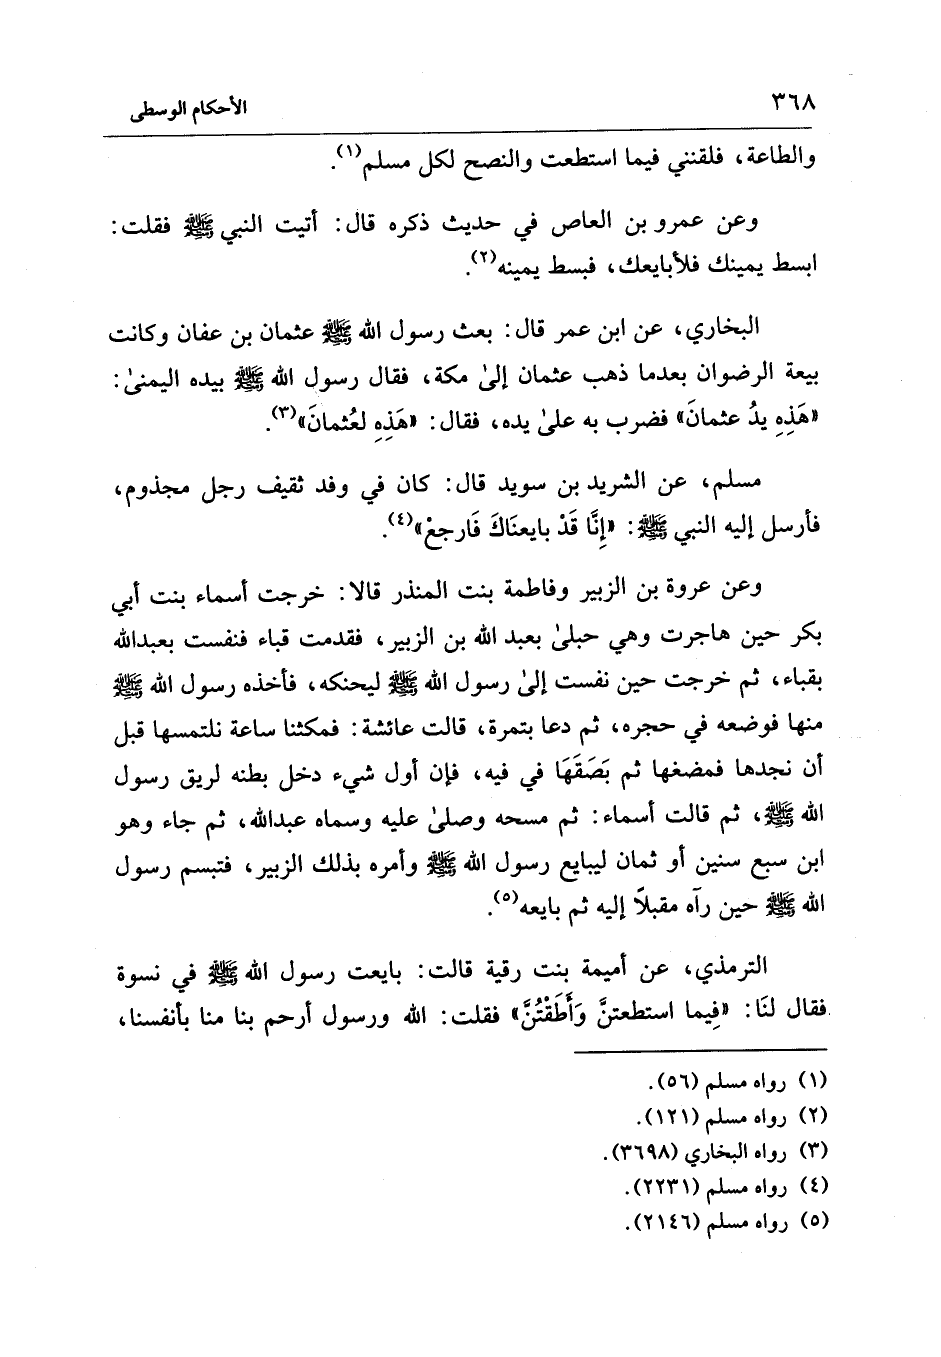 ٣٦٨ الأحكام الوسطى
والطاعة، فلقنني فيما استطعت والنصح لكل مسلم(١).
وعن عمرو بن العاص في حديث ذكره قال: أتيت النبي ﷺ فقلت:
ابسط يمينك فلأبايعك، فبسط يمينه(٢).
البخاري، عن ابن عمر قال: بعث رسول الله ﷺ عثمان بن عفان وكانت
بيعة الرضوان بعدما ذهب عثمان إلىٰ مكة، فقال رسول الله ﷺ بيده اليمنىٰ:
«هَذِهِ يدُ عثمانَ» فضرب به علىٰ يده، فقال: «هَذِهِ لعُثمانَ»(٣).
مسلم، عن الشريد بن سويد قال: كان في وفد ثقيف رجل مجذوم،
فأرسل إليه النبي ﷺ: «إِنَّا قَدْ بايعنَاكَ فَارجعْ»(٤).
وعن عروة بن الزبير وفاطمة بنت المنذر قالا: خرجت أسماء بنت أبي
بكر حين هاجرت وهي حبلىٰ بعبد الله بن الزبير، فقدمت قباء فنفست بعبدالله
بقباء، ثم خرجت حين نفست إلىٰ رسول الله ﷺ ليحنكه، فأخذه رسول الله ﷺ
منها فوضعه في حجره، ثم دعا بتمرة، قالت عائشة: فمكثنا ساعة نلتمسها قبل
أن نجدها فمضغها ثم بَصَقَهَا في فيه، فإن أول شيء دخل بطنه لريق رسول
الله ﷺ، ثم قالت أسماء: ثم مسحه وصلىٰ عليه وسماه عبدالله، ثم جاء وهو
ابن سبع سنين أو ثمان ليبايع رسول الله ﷺ وأمره بذلك الزبير، فتبسم رسول
الله ﷺ حين رآه مقبلاً إليه ثم بايعه(٥).
الترمذي، عن أميمة بنت رقية قالت: بايعت رسول الله ﷺ في نسوة
فقال لنَا: «فِيما استطعتنَّ وَأَطَقْتُنَّ» فقلت: الله ورسول أرحم بنا منا بأنفسنا،
(١) رواه مسلم (٥٦).
(٢) رواه مسلم (١٢١).
(٣) رواه البخاري (٣٦٩٨).
(٤) رواه مسلم (٢٢٣١).
(٥) رواه مسلم (٢١٤٦).